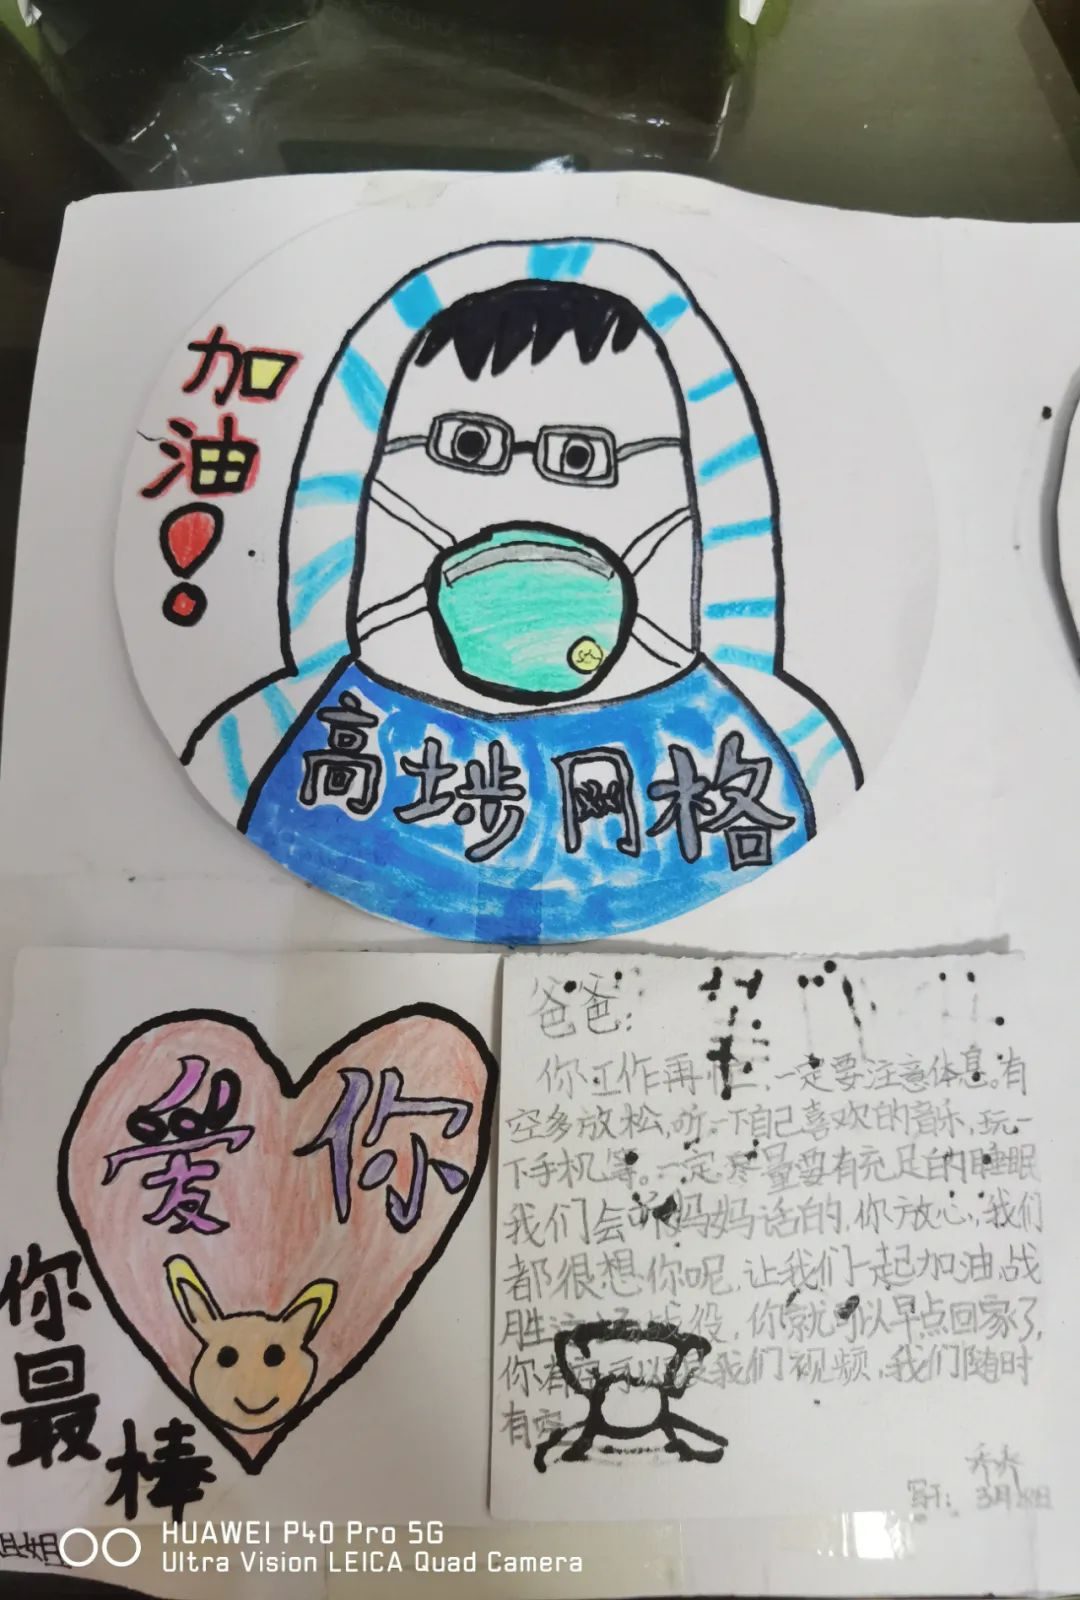 加
油
！
高埗网格
爱你
你
最
棒
爸爸:
你工作再忙,一定要注意休息。有
空多放松,听一下自己喜欢的音乐,玩一
下手机等。一定尽量要有充足的睡眠
我们会听妈妈话的,你放心,我们
都很想你呢,让我们一起加油战
胜这场战役,你就可以早点回家了,
你有空可以跟我们视频,我们随时
有空
写于: 3月
姐姐
HUAWEI P40 Pro 5G
Ultra Vision LEICA Quad Camera